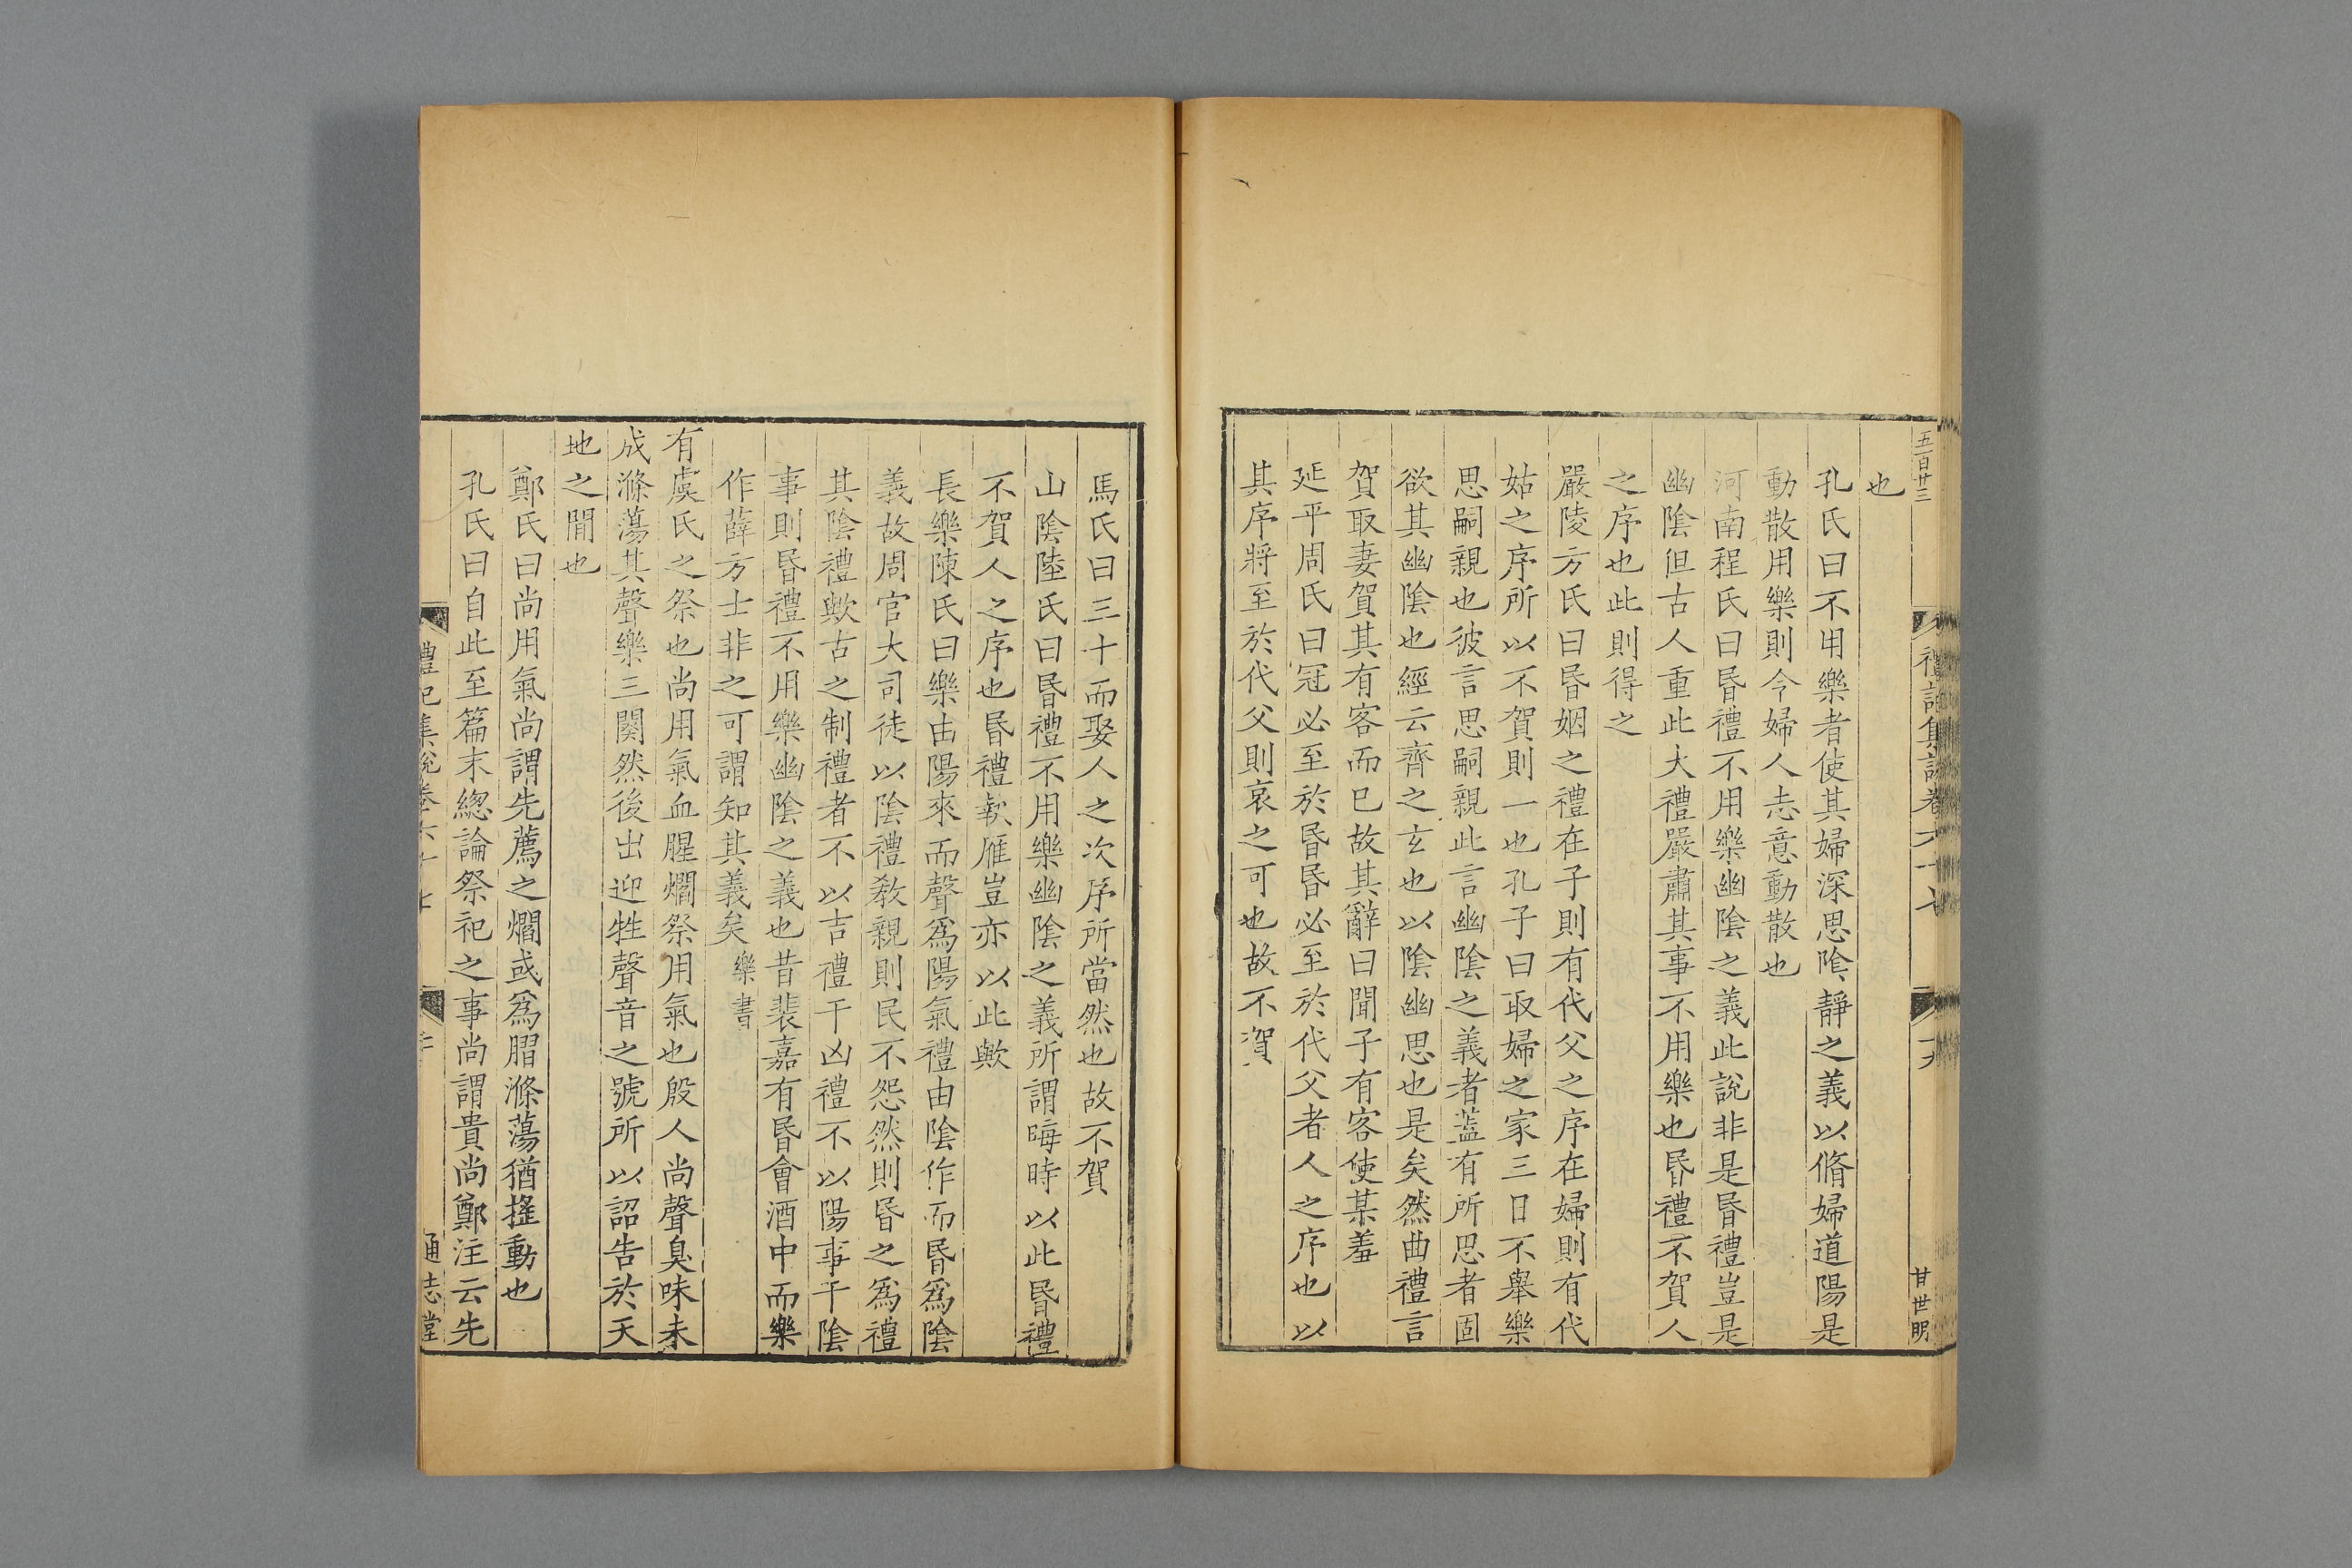 五百廿三
禮記集說卷六十七
甘世明
也
孔氏曰不用樂者使其婦深思陰靜之義以脩婦道陽是
動散用樂則今婦人志意動散也
河南程氏曰昬禮不用樂幽陰之義此說非是昬禮豈是
幽陰但古人重此大禮嚴肅其事不用樂也昬禮不賀人
之序也此則得之
嚴陵方氏曰昬姻之禮在子則有代父之序在婦則有代
姑之序所以不賀則一也孔子曰取婦之家三日不舉樂
思嗣親也彼言思嗣親此言幽陰之義者蓋有所思者固
欲其幽陰也經云齊之玄也以陰幽思也是矣然曲禮言
賀取妻賀其有客而已故其辭曰聞子有客使某羞
延平周氏曰冠必至於昬昬必至於代父者人之序也以
其序將至於代父則哀之可也故不賀
馬氏曰三十而娶人之次序所當然也故不賀
山陰陸氏曰昬禮不用樂幽陰之義所謂晦時以此昬禮
不賀人之序也昬禮執雁豈亦以此歟
長樂陳氏曰樂由陽來而聲爲陽氣禮由陰作而昬爲陰
義故周官大司徒以陰禮敎親則民不怨然則昬之爲禮
其陰禮歟古之制禮者不以吉禮干凶禮不以陽事干陰
事則昬禮不用樂幽陰之義也昔裴嘉有昬會酒中而樂
作薛方士非之可謂知其義矣樂書
有虞氏之祭也尚用氣血腥爓祭用氣也殷人尚聲臭味未
成滌蕩其聲樂三闋然後出迎牲聲音之號所以詔告於天
地之閒也
鄭氏曰尚用氣尚謂先薦之爓或爲腤滌蕩猶搖動也
孔氏曰自此至篇末緫論祭祀之事尚謂貴尚鄭注云先
禮記集說卷六十七
通志堂